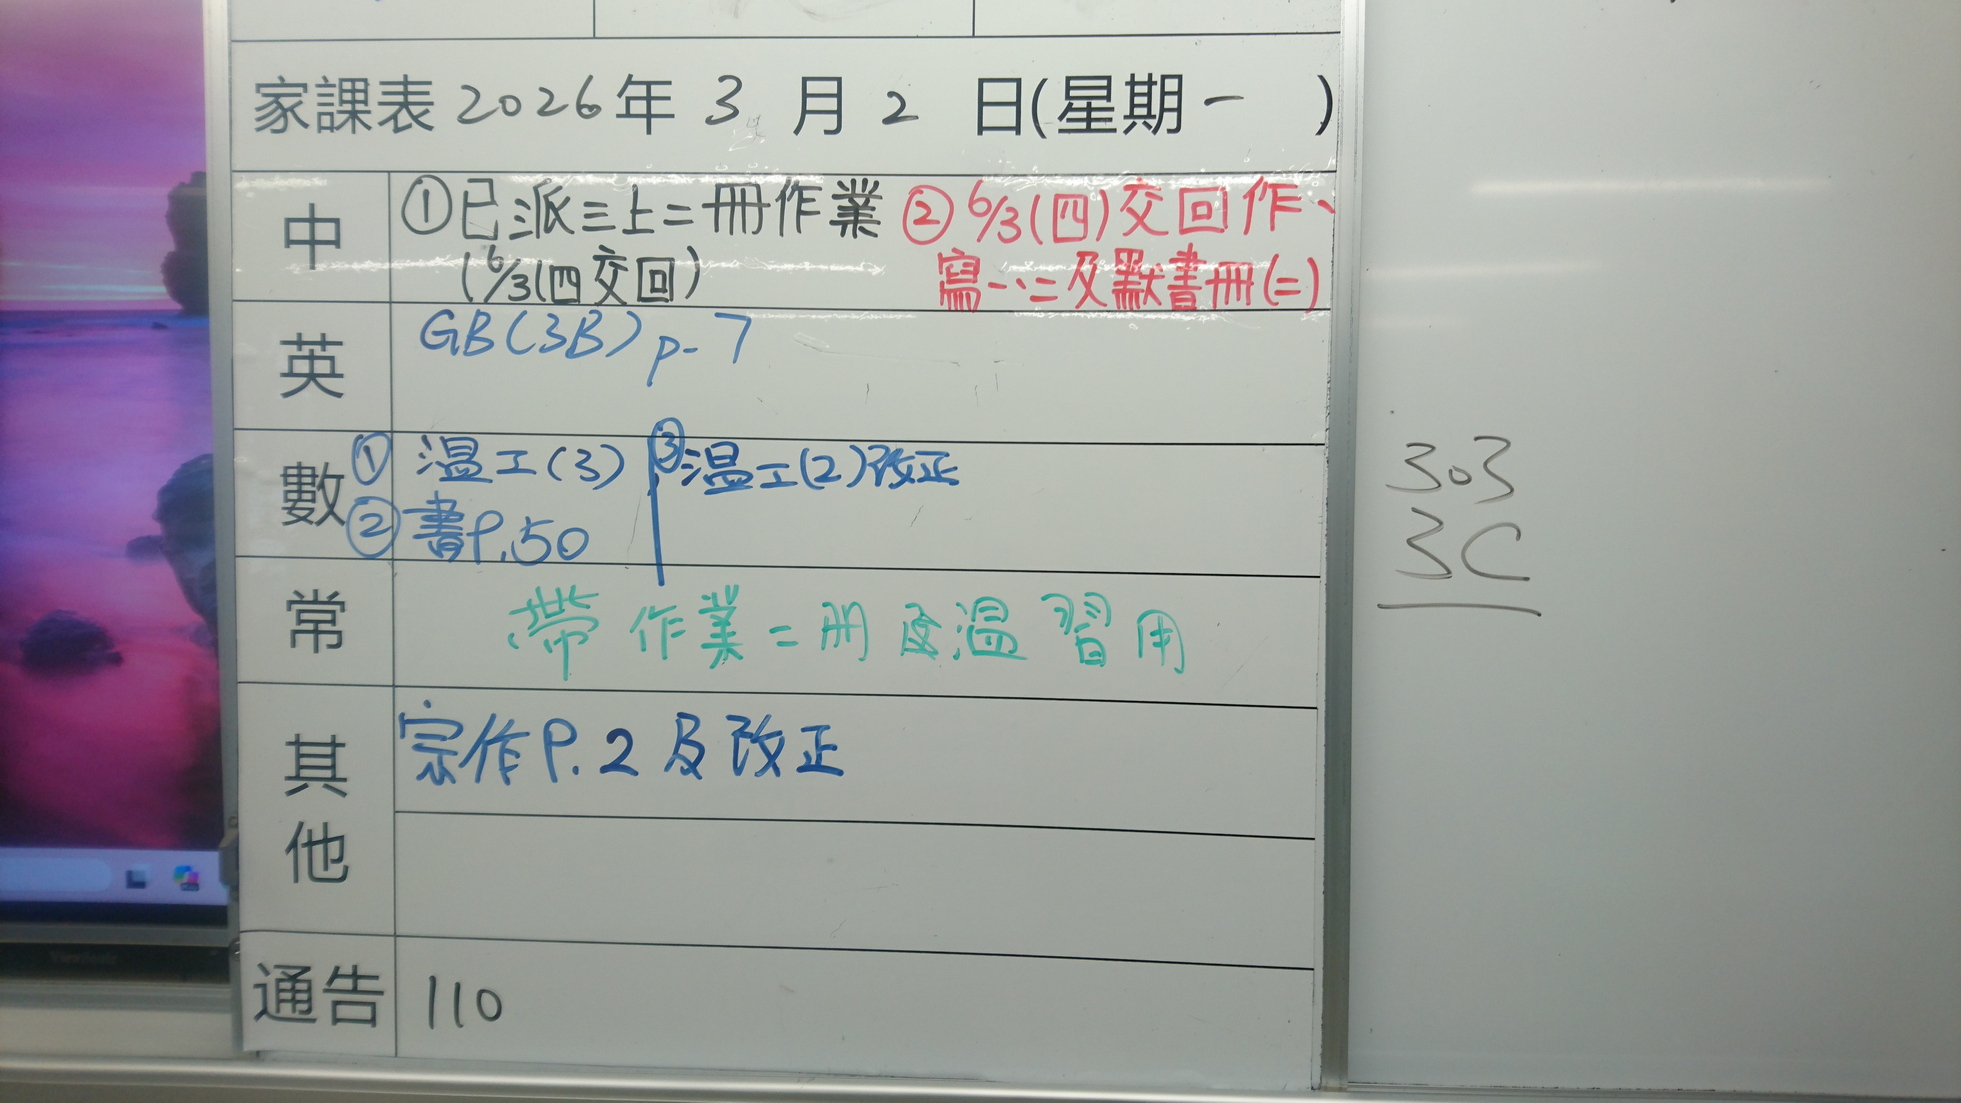 家課表 2026年 3 月 2 日(星期一 )
中
①已派三上二冊作業
(6/3(四交回)
②6/3(四)交回作、
寫一、二及默書冊(二)
英
GB(3B) p.7
數
①溫工(3)
②書P.50
③溫工(2)改正
常
帶作業二冊及溫習用
其他
宗作P.2及改正
通告
110
303
3C